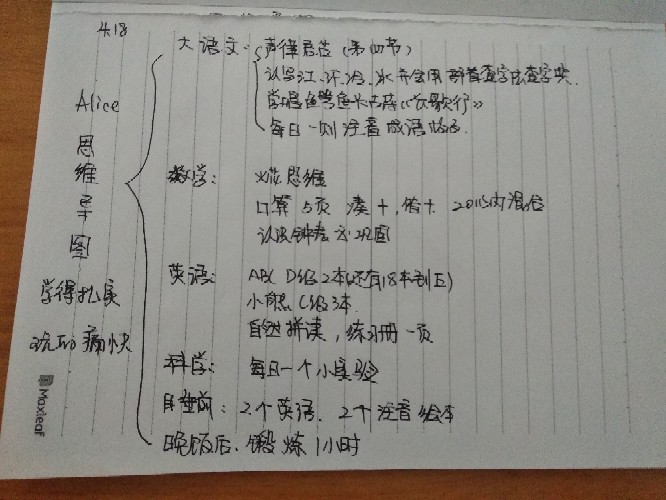 4.18
Alice
思维导图
学得扎实
玩的痛快
大语文: 声律启蒙(第四节)
认写江、河、冰 并会用部首查字法查字典.
学唱 《长歌行》
每日一则注音成语故事.
数学: 火花思维
口算5页 凑十,借十 20以内混合
认识钟表 巩固
英语: ABC D级2本(还有18本到E)
小熊C级3本.
自然拼读,练习册一页
科学: 每日一个小实验
睡前: 2个英语. 2个注音绘本
晚饭后. 锻炼1小时
Maxleaf